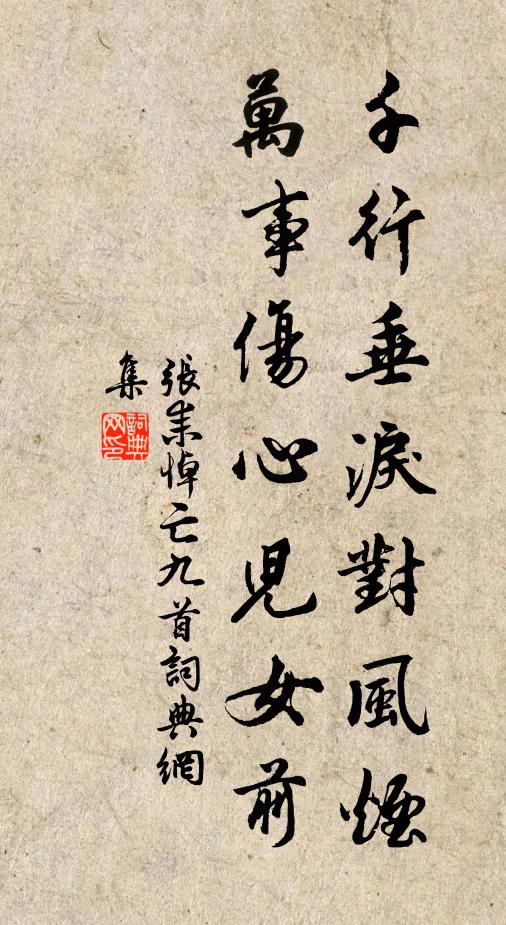 千行垂淚對風煙
萬事傷心兒女前
張耒悼亡九首詞典網
集
詞典網印